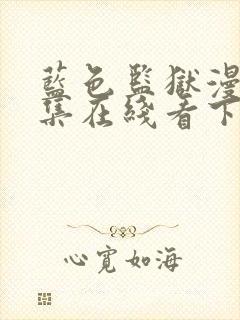 藍色監獄漫
集在綫看下
心寬如海